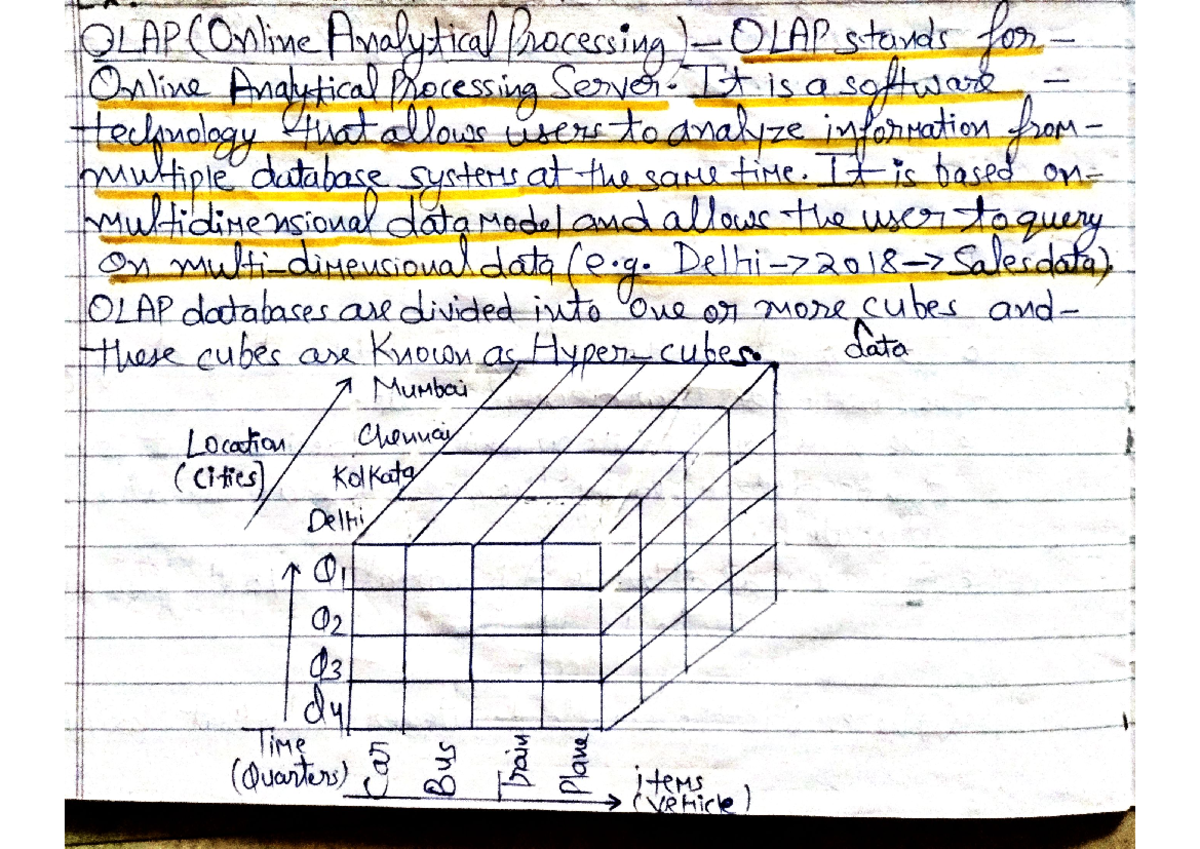 OLAP (Online Analytical Processing) – OLAP stands for –
Online Analytical Processing Server. It is a software –
technology that allows users to analyze information from –
multiple database systems at the same time. It is based on –
multidimensional data model and allows the user to query
on multi-dimensional data (e.g. Delhi -> 2018 -> Sales data).
OLAP databases are divided into one or more cubes and –
data
these cubes are Known as Hyper-cubes.
Mumbai
Location
(cities)
Chennai
Kolkata
Delhi
Q1
Q2
Q3
Q4
Time
(Quarters)
Car
Bus
Train
Plane
items
(vehicle)